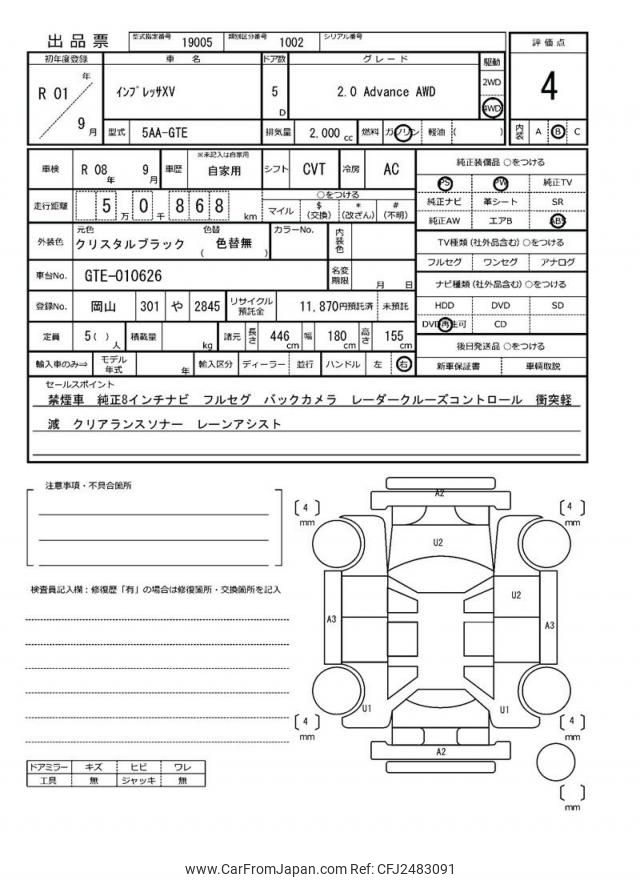 出品票 型式指定番号 19005 類別区分番号 1002 シリアル番号
初年度登録 車名 ドア数 グレード 駆動 評価点
R 01 年 9 月 ｲﾝﾌﾟﾚｯｻXV 5 D 2.0 Advance AWD 2WD 4WD 4
型式 5AA-GTE 排気量 2,000 cc 燃料 ガソリン 軽油 ( ) 内装 A B C
車検 R 08 年 9 月 車歴 ※未記入は自家用 自家用 シフト CVT 冷房 AC
純正装備品 ○をつける
PS PW 純正TV
純正ナビ 革シート SR
純正AW エアB ABS
走行距離 5 万 0 千 8 6 8 km
○をつける
マイル $ (交換) * (改ざん) # (不明)
外装色 元色 クリスタルブラック 色替 ( 色替無 ) カラーNo. 内装色
TV種類 (社外品含む) ○をつける
フルセグ ワンセグ アナログ
車台No. GTE-010626 名変期限 月 日
ナビ種類 (社外品含む) ○をつける
HDD DVD SD
DVD再生可 CD
登録No. 岡山 301 や 2845 リサイクル預託金 11,870円預託済 未預託
定員 5( ) 人 積載量 kg 諸元 長さ 446 cm 幅 180 cm 高さ 155 cm
後日発送品 ○をつける
新車保証書 車輌取説
輸入車のみ⇒ モデル年式 年 輸入区分 ディーラー 並行 ハンドル 左 右
セールスポイント
禁煙車 純正8インチナビ フルセグ バックカメラ レーダークルーズコントロール 衝突軽
減 クリアランスソナー レーンアシスト
注意事項・不具合箇所
検査員記入欄：修復歴「有」の場合は修復箇所・交換箇所を記入
A2
[ 4 ] mm
[ 4 ] mm
U2
U2
A3
A3
U1
U1
[ 4 ] mm
[ 4 ] mm
A2
[ ] mm
ドアミラー キズ ヒビ ワレ
工具 無 ジャッキ 無
www.CarFromJapan.com Ref: CFJ2483091